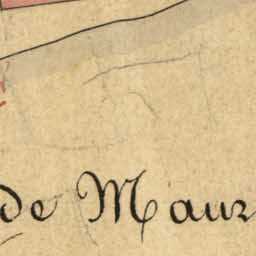 de Maur